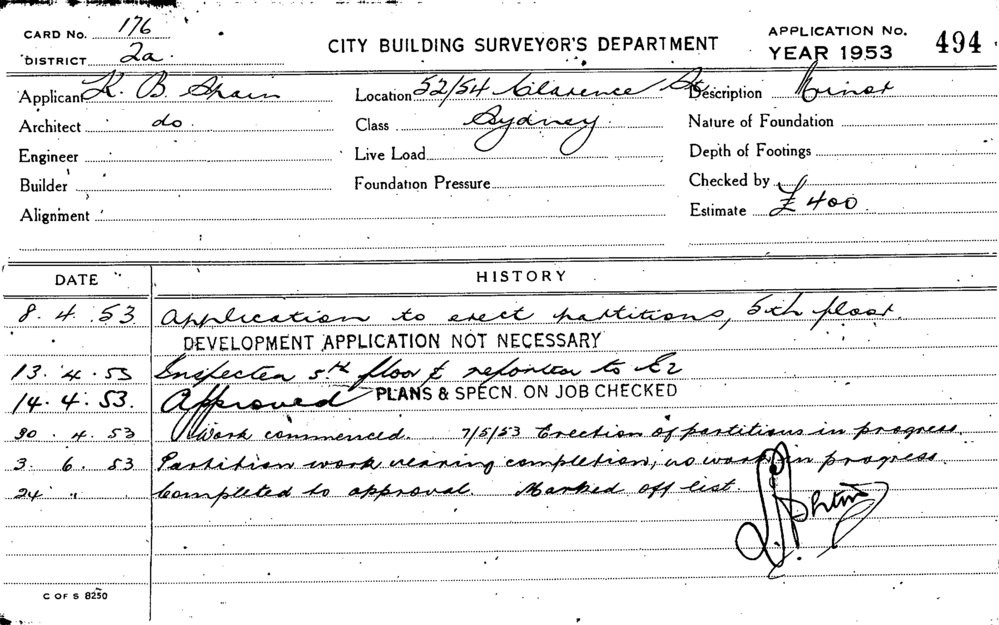 CARD No. 176
DISTRICT 2a.
CITY BUILDING SURVEYOR'S DEPARTMENT
APPLICATION No. 494
YEAR 1953
Applicant K. B. Spain
Location 52/54 Clarence St.
Description Minor
Architect do
Class Sydney.
Nature of Foundation
Engineer
Live Load
Depth of Footings
Builder
Foundation Pressure
Checked by
Alignment
Estimate £400
DATE HISTORY
8. 4. 53 Application to erect partitions, 5th floor.
DEVELOPMENT APPLICATION NOT NECESSARY
13. 4. 53 Inspected 5th floor & reported to
14. 4. 53. Approved PLANS & SPECN. ON JOB CHECKED
30. 4. 53 Work commenced. 7/5/53 Erection of partitions in progress.
3. 6. 53 Partition work nearing completion, no work in progress.
24 " " Completed to approval. Marked off list.
C OF S 8250